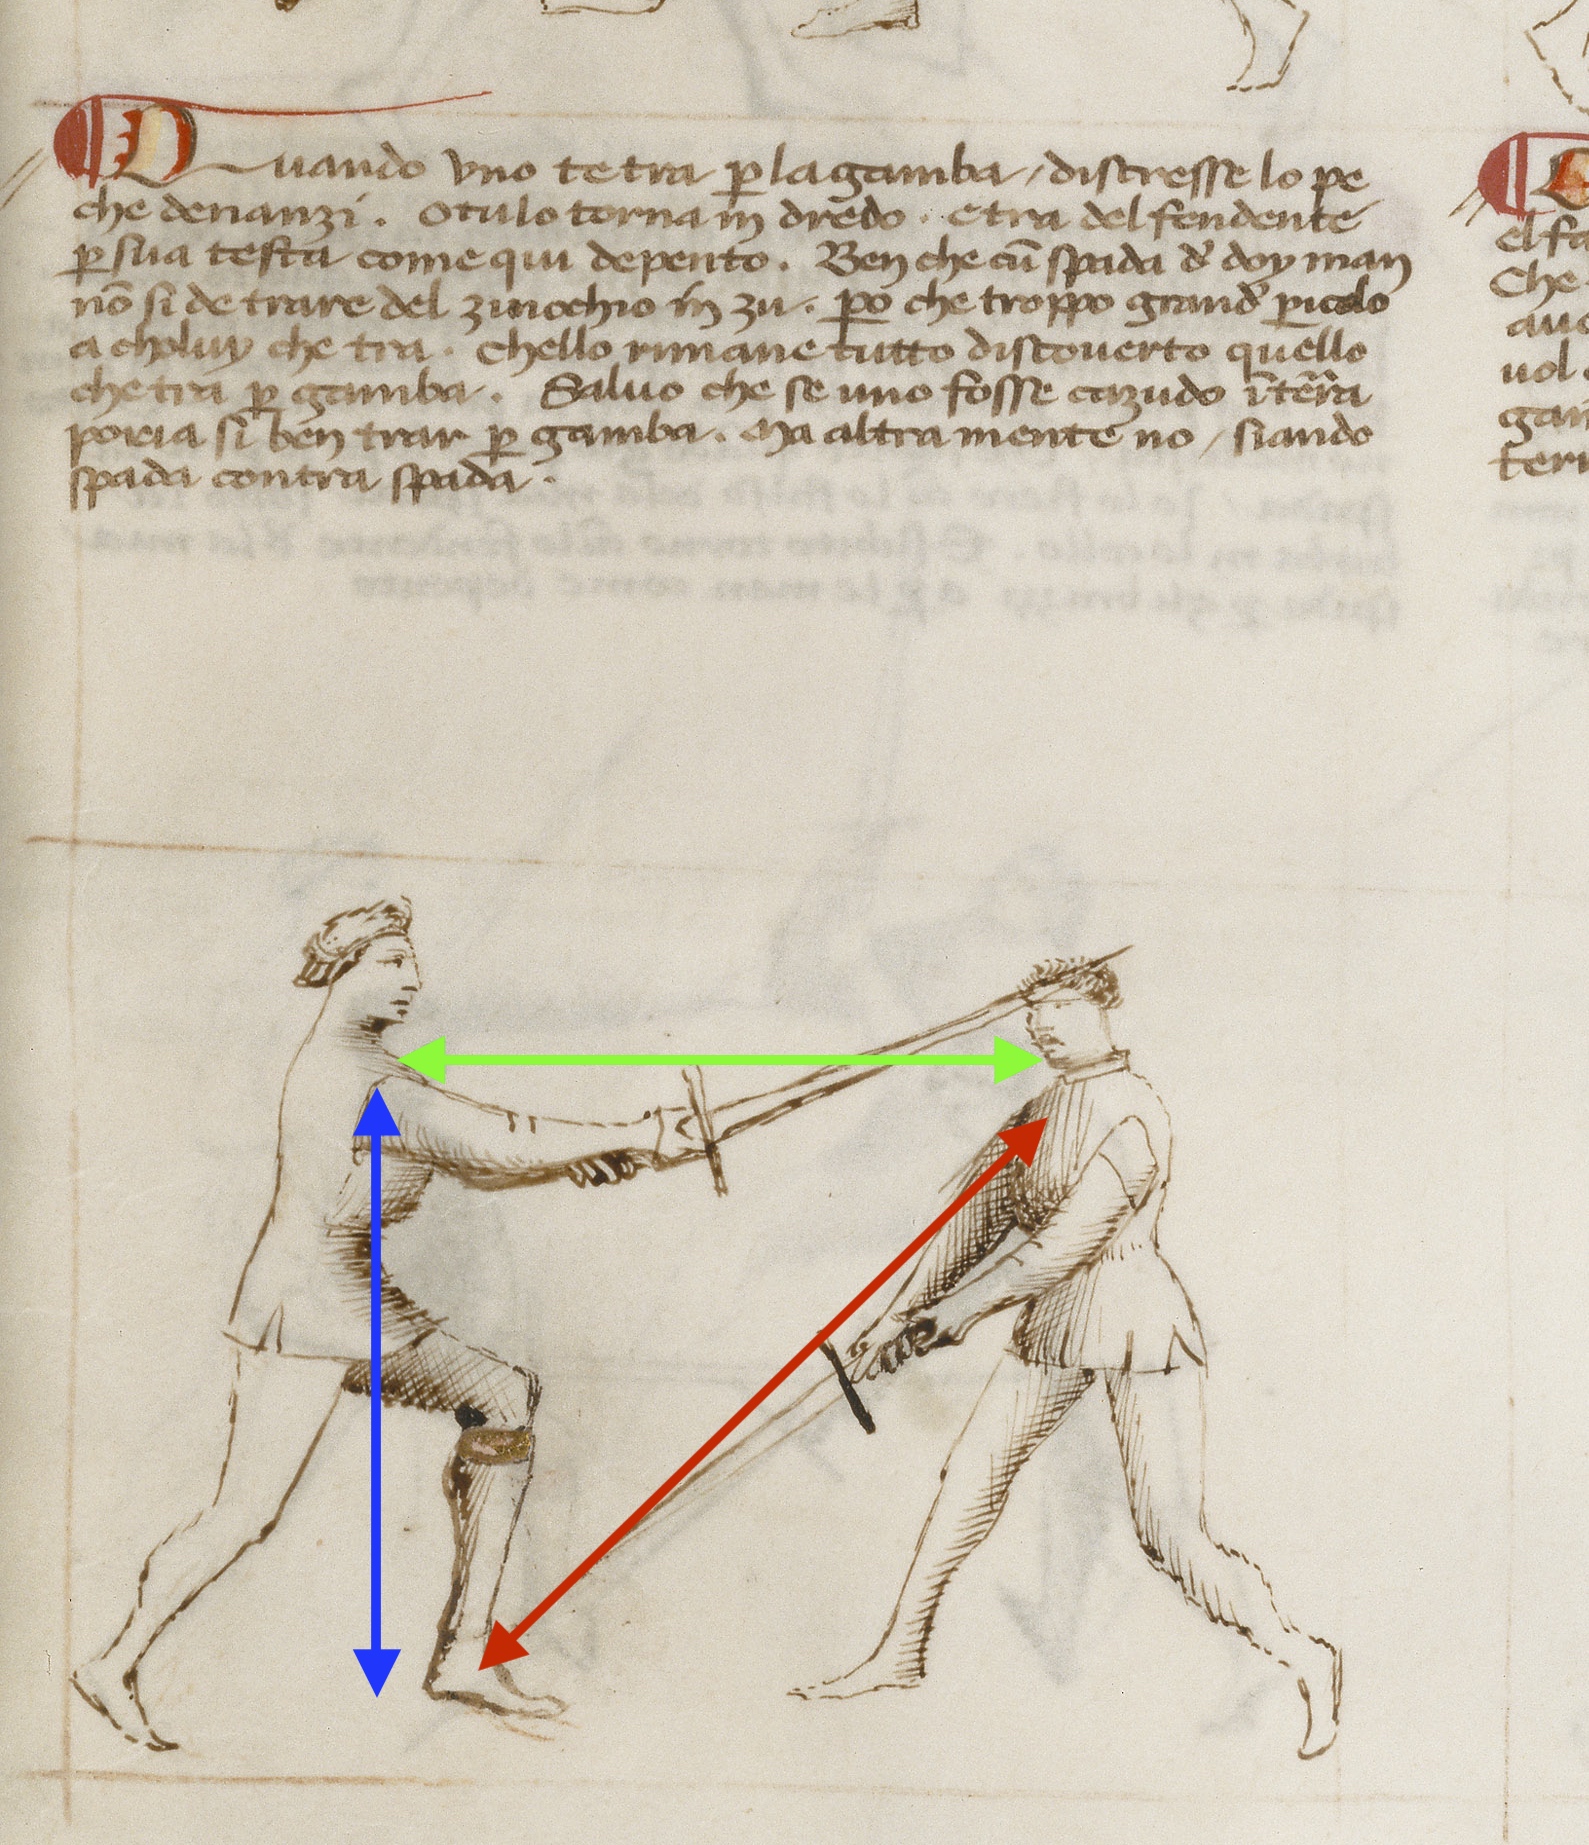 Quando vno te tra p la gamba / discresse lo pe
che denanzi. O tu lo torna in dredo. E tra del fendente
p sua testa come qui depento. Ben che cū spada d' doy man
nō si de trare del zinochio in zu. po che troppo grand' piculo
a choluy che tra. Chello rimane tutto discouerto quello
che tra p gamba. Saluo che se uno fosse cazudo ī tēra
poria si ben trar p gamba. Ma altra mente no / siando
spada contra spada.
el fa
Che
uol
gam